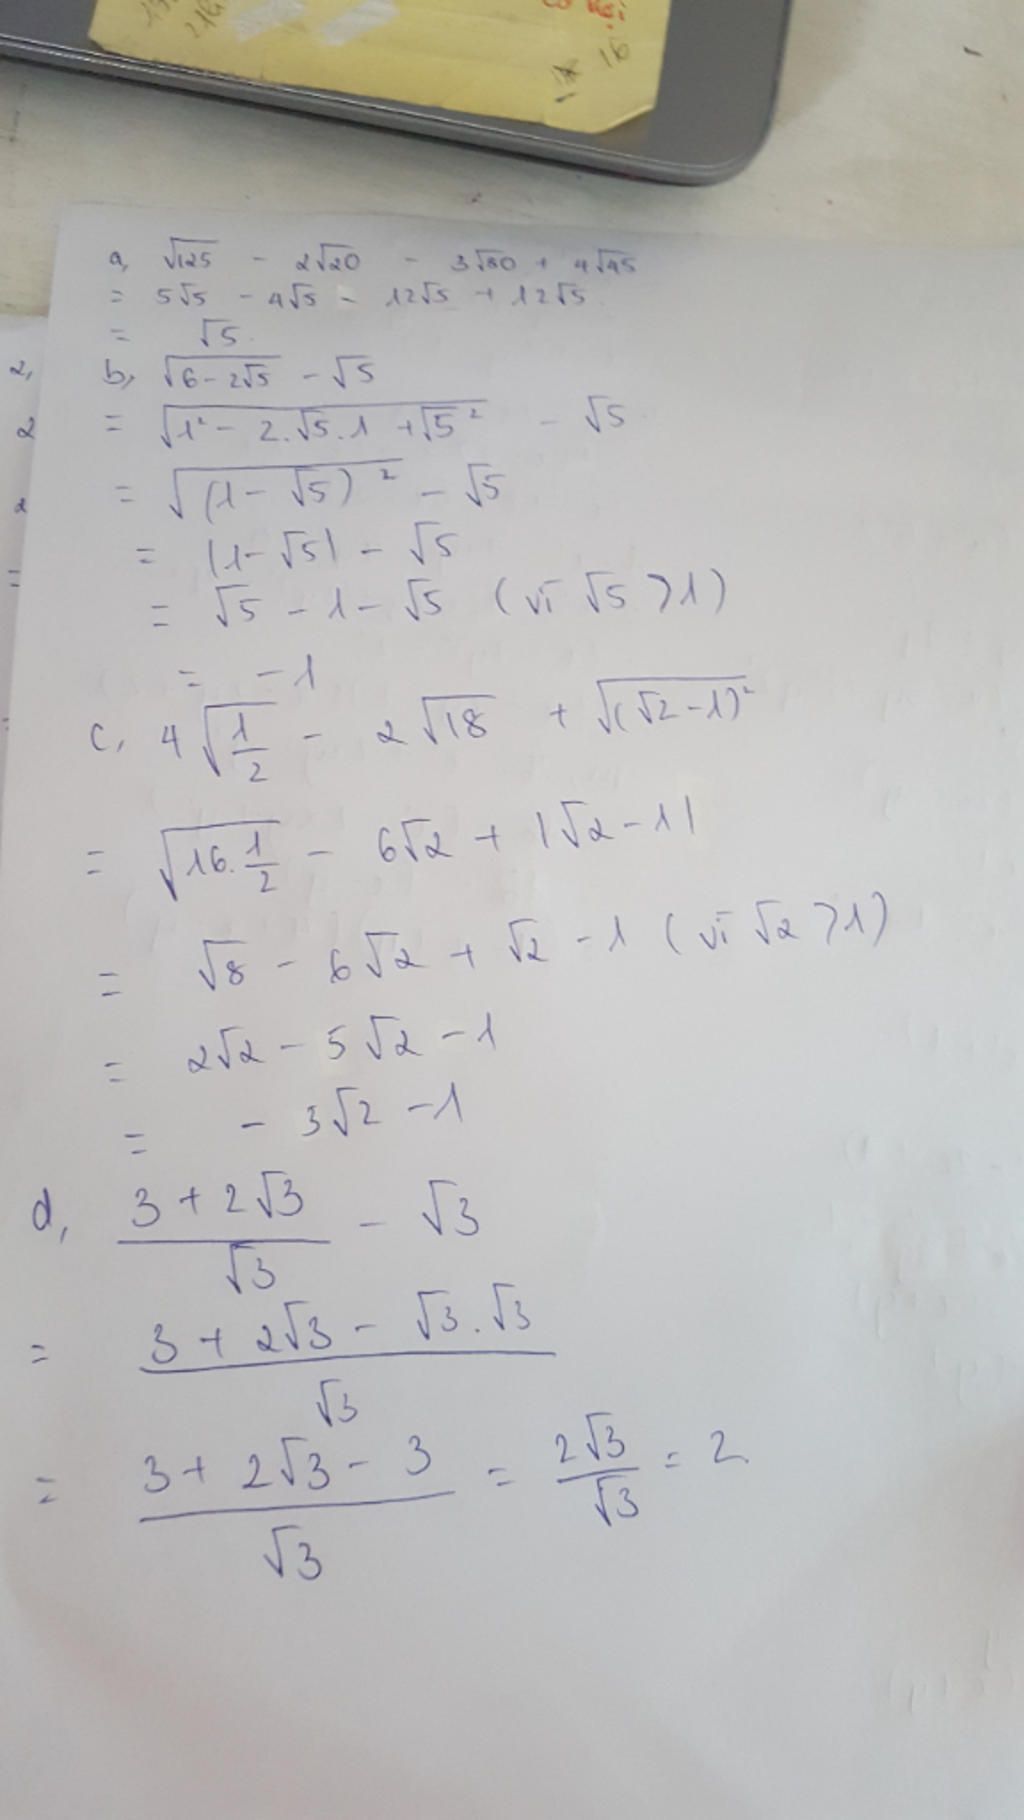 có tại
16
a, √125 - 2√20 - 3√80 + 4√45
= 5√5 - 4√5 - 12√5 + 12√5.
= √5.
b, √(6-2√5) - √5
= √(1² - 2.√5.1 + √5²) - √5
= √((1-√5)²) - √5
= |1-√5| - √5
= √5 - 1 - √5 (vì √5 >1)
= -1
c, 4√(1/2) - 2√18 + √((√2-1)²)
= √(16.1/2) - 6√2 + |√2-1|
= √8 - 6√2 + √2 - 1 (vì √2 >1)
= 2√2 - 5√2 - 1
= - 3√2 - 1
d, (3 + 2√3)/√3 - √3
= (3 + 2√3 - √3.√3)/√3
= (3 + 2√3 - 3)/√3 = 2√3/√3 = 2.
2,
2
2
=